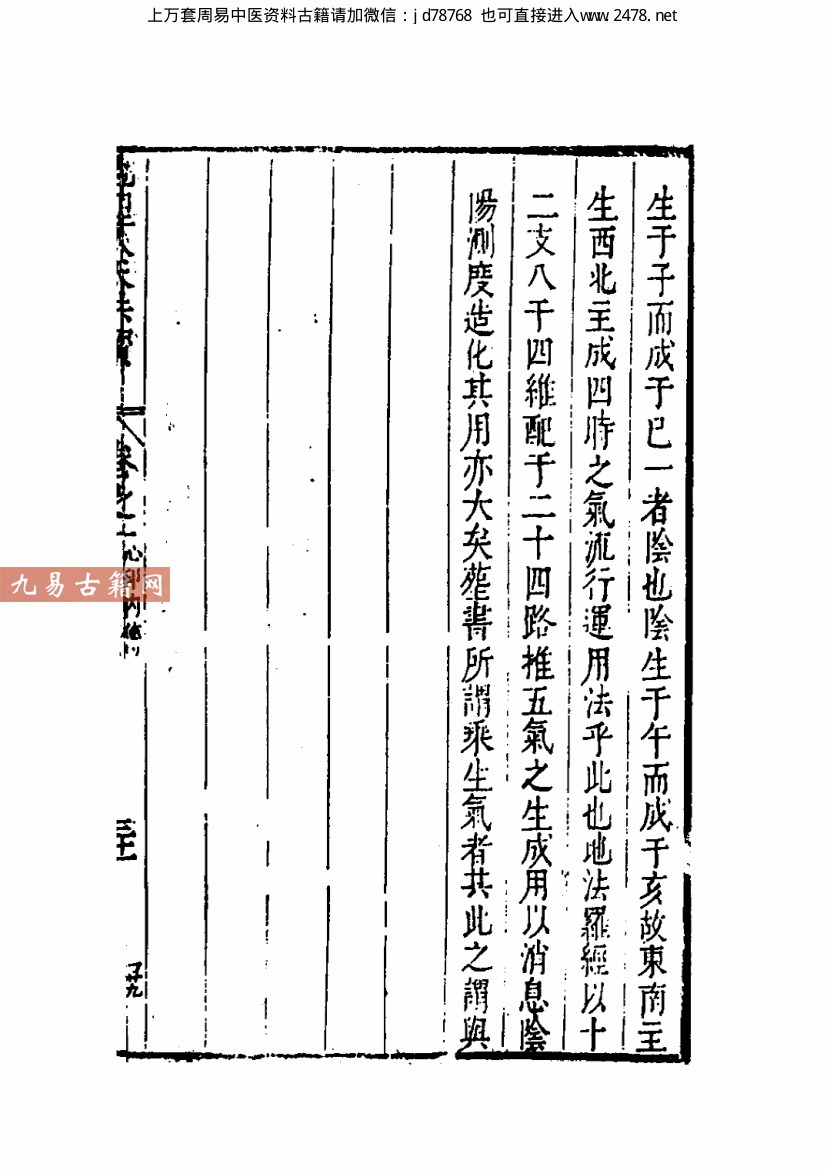 上万套周易中医资料古籍请加微信：jd78768 也可直接进入www.2478.net
生于子而成于巳一者陰也陰生于午而成于亥故東南主
生西北主成四時之氣流行運用法乎此也地法羅經以十
二支八干四維配于二十四路推五氣之生成用以消息陰
陽測度造化其用亦大矣塟書所謂乘生氣者其此之謂與
卷之
九易古籍网